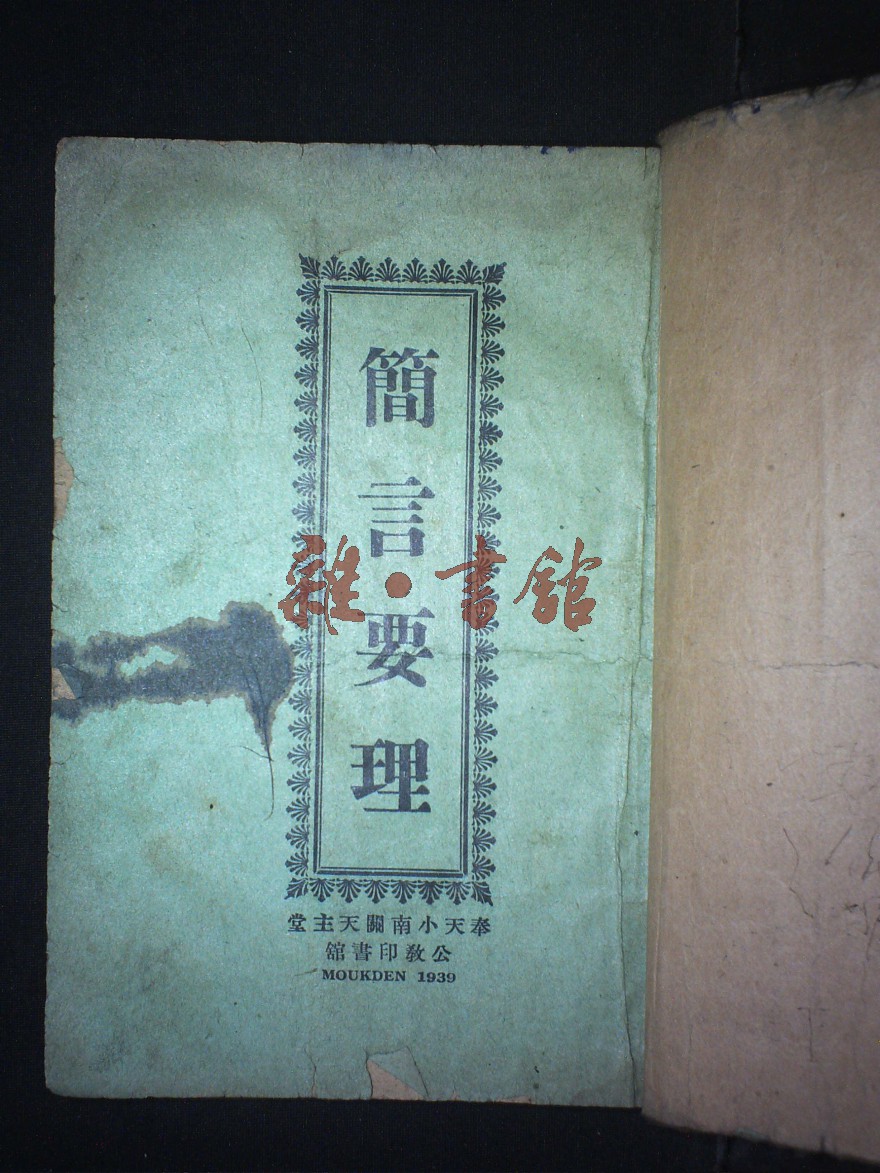 簡言要理
雜·書館
奉天小南關天主堂
公教印書館
MOUKDEN 1939